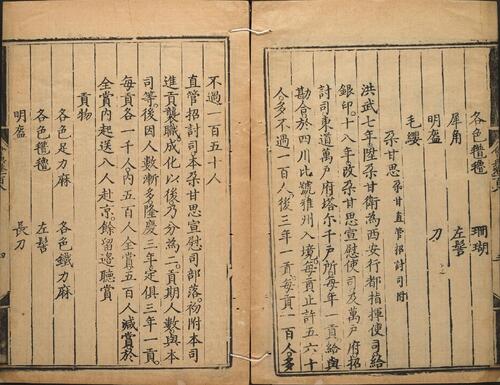 各色氆氇 珊瑚
犀角 左髻
明盔 刀
毛纓
朶甘思 朶甘直管招討司附
洪武七年陞朶甘衛為西安行都指揮使司給
銀印。十八年改朶甘思宣慰使司及萬戶府招
討司東道萬戶府塔爾千戶所每年一貢給與
勘合於四川比號雅州入境每貢止許五六十
人多不過一百人後三年一貢。每貢一百人。多
不過一百五十人
直管招討司本朶甘思宣慰司部落。初附本司
進貢襲職成化以後乃分為二。貢期人數與本
司等。後因人數漸多隆慶三年定俱三年一貢。
每貢各一千人內五百人全賞五百人減賞於
全賞內起送八人赴京。餘留邊聽賞
貢物
各色足力麻 各色鐵力麻
各色氆氇 左髻
明盔 長刀